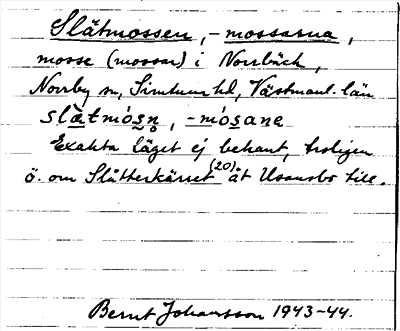 Slätmossen, -mossarna,
mosse (mossar) i Norrbäck,
Norrby sn, Simtuna hd, Västmanl. län
slætmósn̥, -mósana
Exakta läget ej bekant, troligen
ö. om Slätterkärret (20) åt Usansbo till.
Bernt Johansson 1943-44.